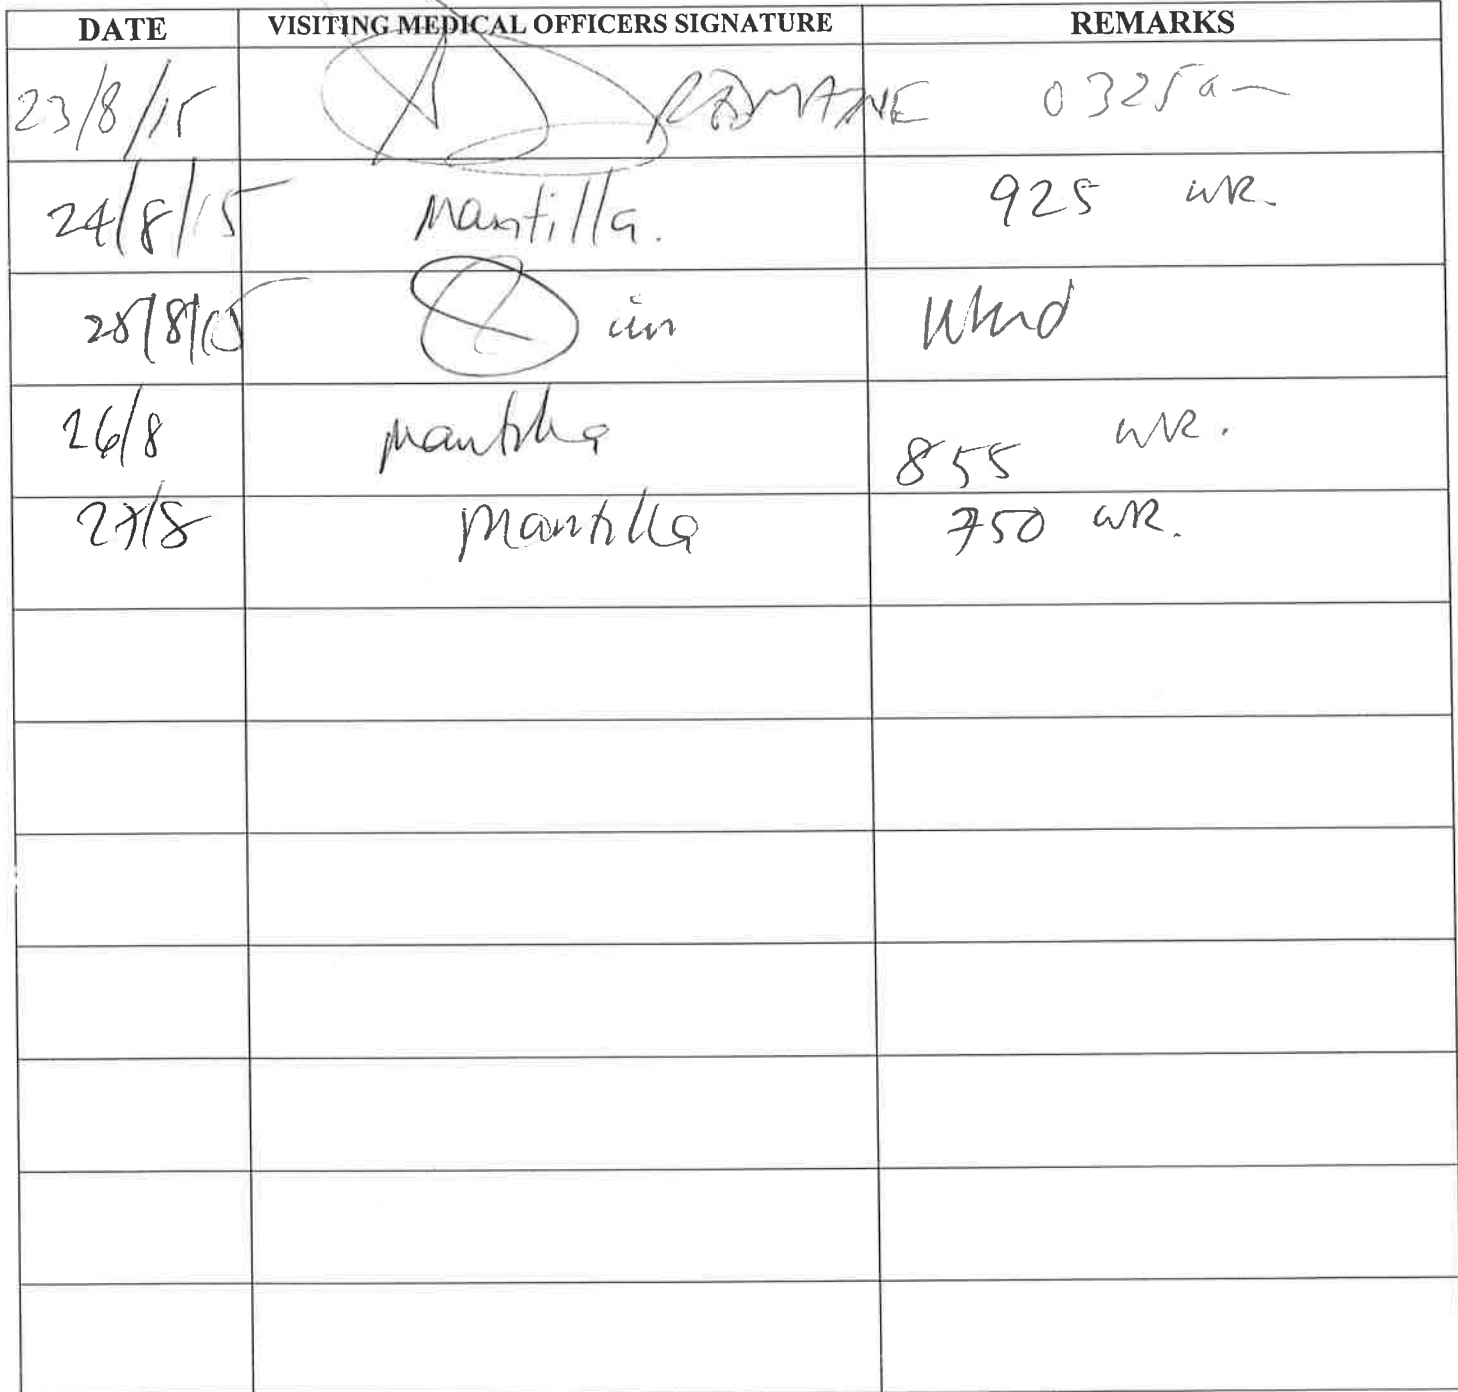 DATE VISITING MEDICAL OFFICERS SIGNATURE REMARKS
23/8/15 0325a
24/8/15 Mantilla. 925 WR.
25/8/15
26/8 Mantilla 855 WR.
27/8 Mantilla 750 WR.